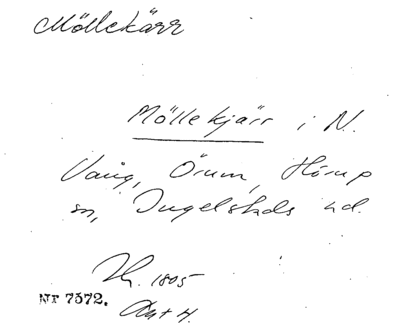 Möllekärr
Möllekjärr i N.
Vång, Örum, Hörup
sn, Ingelstads hd.
1805
Nr 7572.